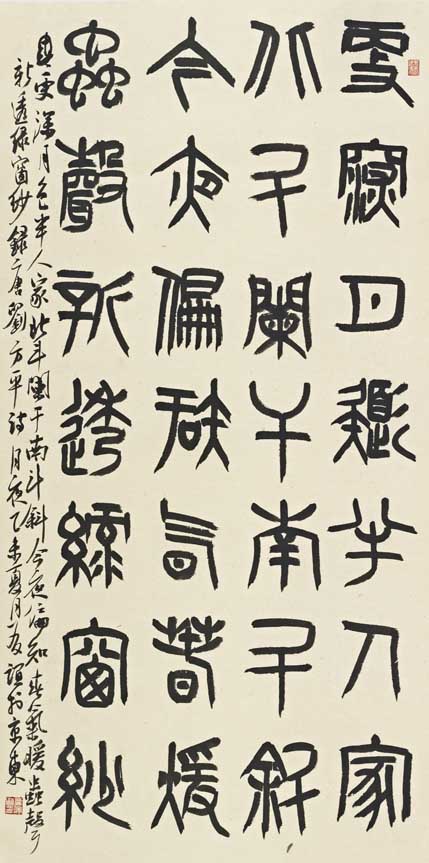 更深月色半人家
北斗闌干南斗斜
今夜偏知氣春煖
蟲聲新透綠窗紗
更深月色半人家北斗闌干南斗斜今夜偏知春氣暖蟲聲
新透綠窗紗錄唐劉方平詩月夜乙未夏月友誼於京東